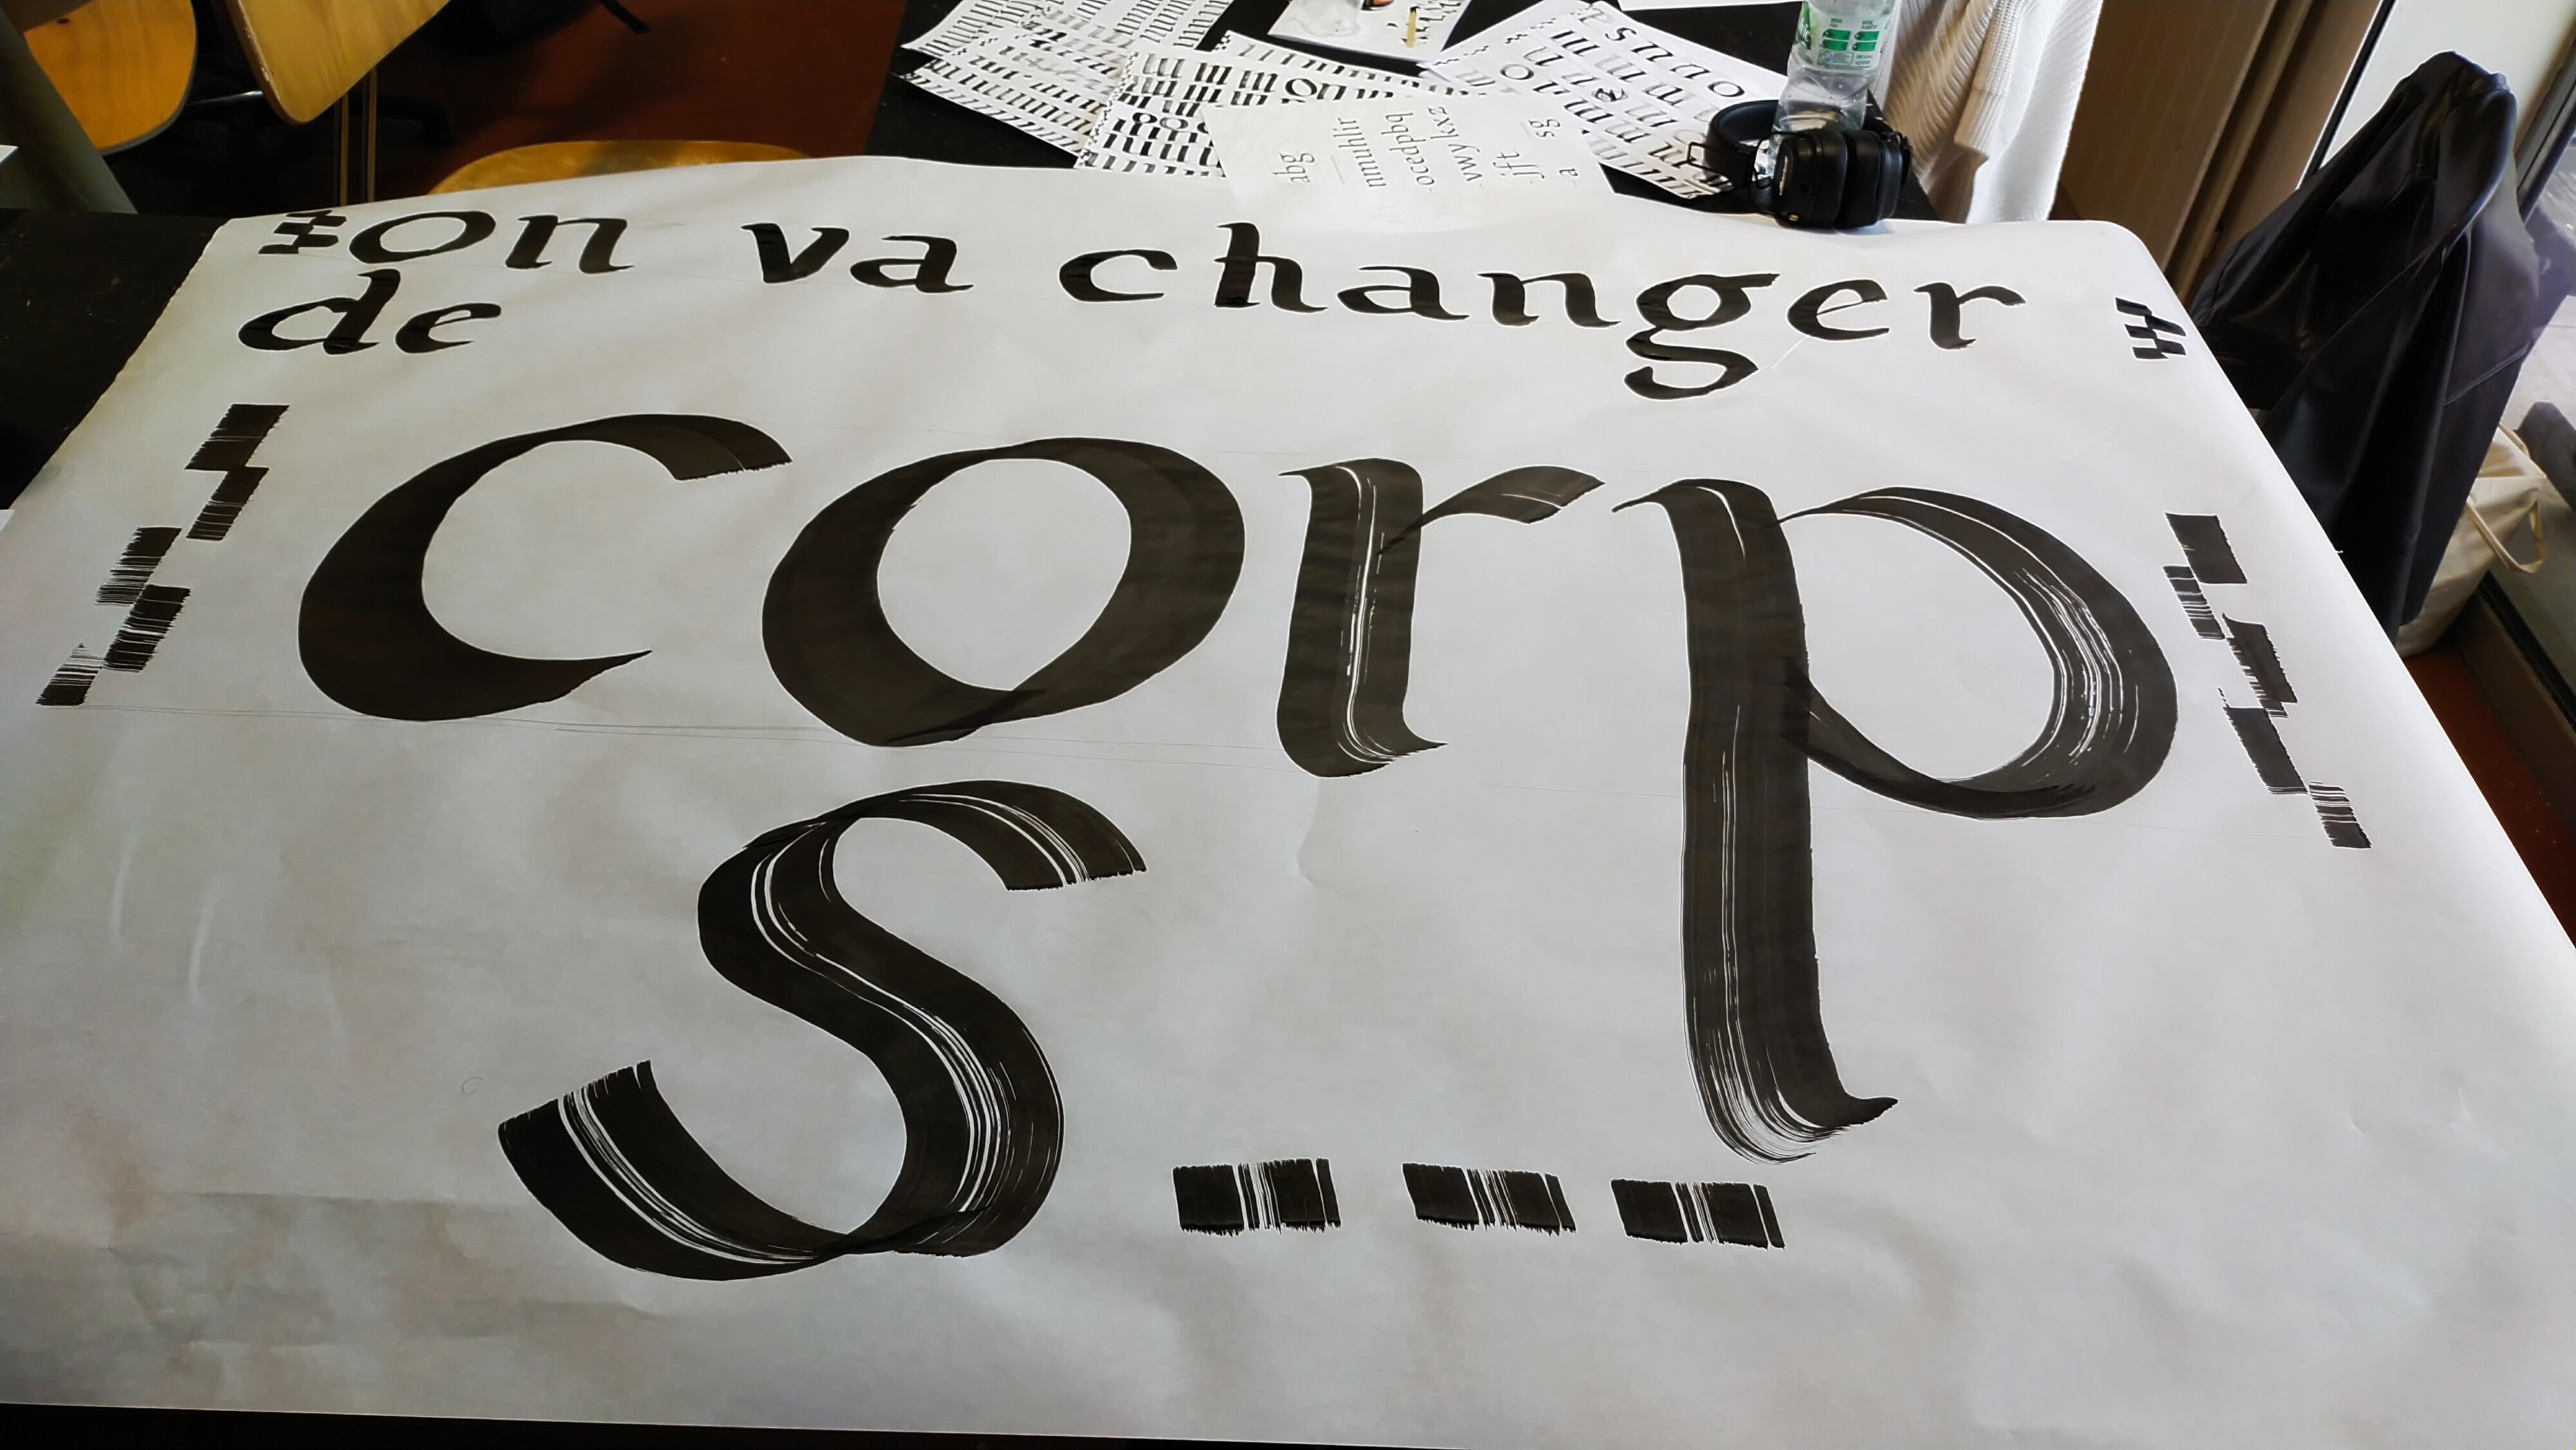 on va changer
de
corp
s
abg
nmuhlir
ocedpbq
vwy kxz
jft
a
sg